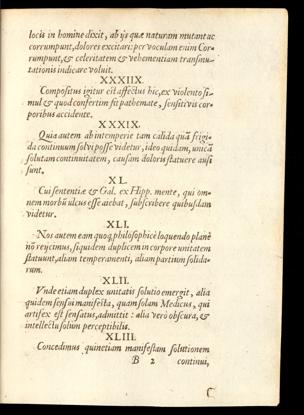 locis in homine dixit, ab ijs quæ naturam mutant ac
corrumpunt, dolores excitari: per voculam enim Cor-
rumpunt, & celeritatem & vehementiam transmu-
tationis indicare voluit.
XXXIIX.
Compositus igitur est affectus hic, ex violento si-
mul & quod confertim fit pathemate, sensitivis cor-
poribus accidente.
XXXIX.
Quia autem ab intemperie tam calida quā frigi-
da continuum solvi posse videtur, ideo quidam, unicā
solutam continuitatem, causam doloris statuere ausi
sunt.
XL.
Cui sententiæ & Gal. ex Hipp. mente, qui om-
nem morbū ulcus esse aiebat, subscribere quibusdam
videtur.
XLI.
Nos autem eam quoq; philosophicè loquendo planè
nō rejicimus, siquidem duplicem in corpore unitatem
statuunt, aliam temperamenti, aliam partium solida-
rum.
XLII.
Unde etiam duplex unitatis solutio emergit, alia
quidem sensui manifesta, quam solam Medicus, qui
artifex est sensatus, admittit: alia verò obscura, &
intellectu solùm perceptibilis.
XLIII.
Concedimus quinetiam manifestam solutionem
B 2 continui,